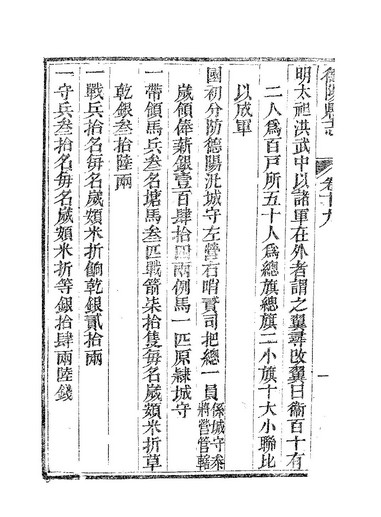 卷十九
一
明太祖洪武中以諸軍在外者謂之翼尋改翼曰衞百十有
二人爲百戸所五十人爲總旗總旗二小旗十大小聯比
以成軍
國初分防德陽汛城守左營右哨實司把總一員係城守叅將營管轄
歲領俸薪銀壹百肆拾四兩例馬一匹原隸城守
一帶領馬兵叁名塘馬叁匹戰箭柒拾隻每名歲額米折草
乾銀叁拾陸兩
一戰兵拾名每名歲額米折餉乾銀貳拾兩
一守兵叁拾名每名歲額米折等銀拾肆兩陸錢